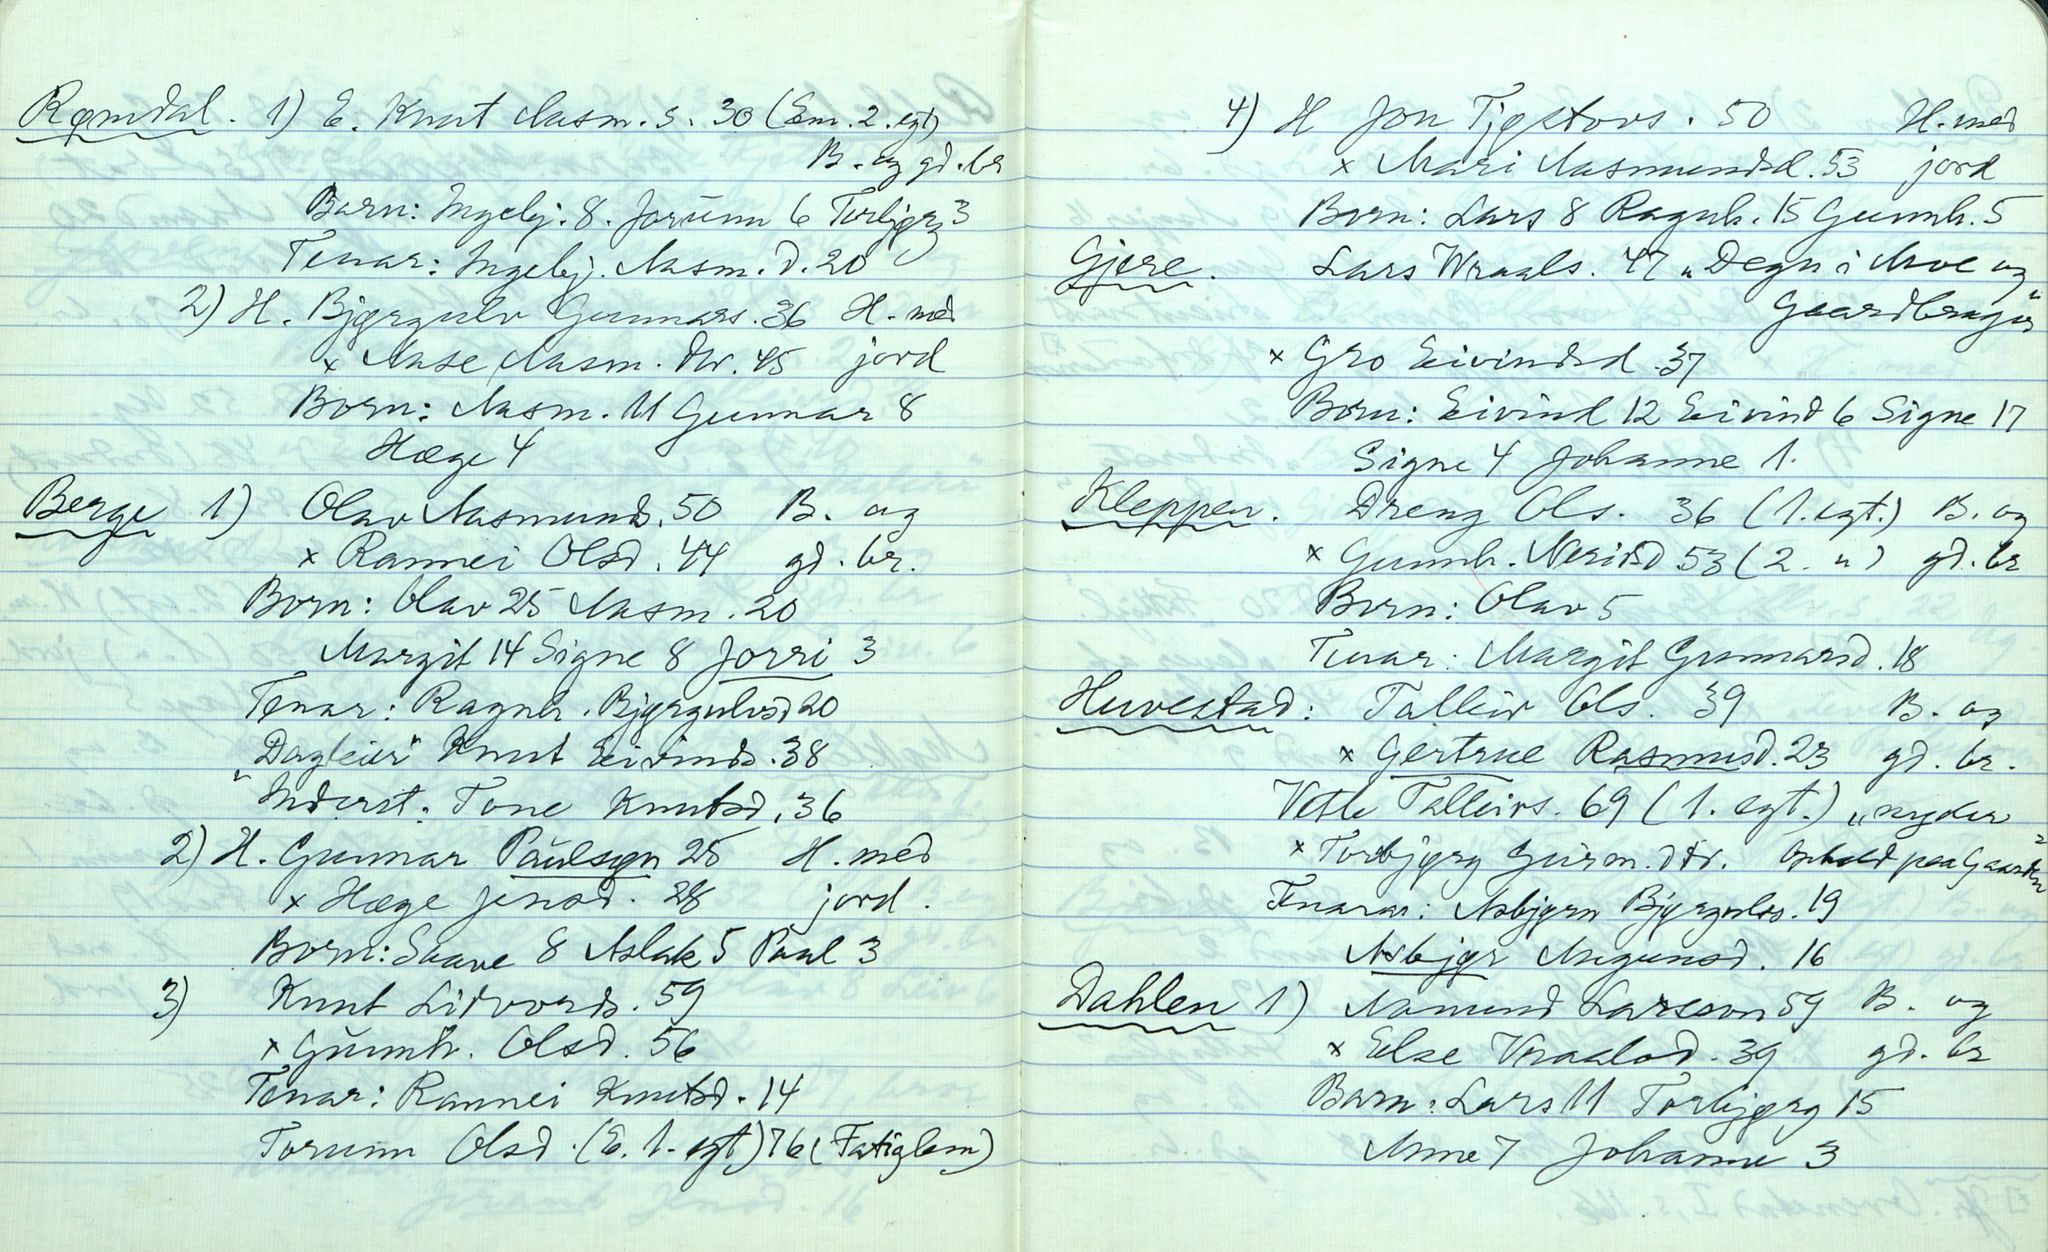 Rømdal. 1) E. Knut Aasm. s. 30 (Em. 2. egt)
B. og gd. br
Barn: Ingebj. 8. Jorunn 6 Torbjørg 3
Tenar: Ingebj. Aasm. d. 20
2) H. Bjørgulv Gunnars. 36 H. med
x Aase Aasm. dtr. 45 jord
Born: Aasm. 11 Gunnar 8
Hæge 4
Berge 1) Olav Aasmunds. 50 B. og
x Rannei Olsd. 44 gd. br.
Born: Olav 25 Aasm. 20
Margit 14 Signe 8 Jorri 3
Tenar: Ragnh. Bjørgulvsd 20
"Dagleier" Knut Eivinds. 38
Inderst: Tone Knutsd. 36
2) H. Gunnar Paulsøn 25 H. med
x Hæge Jensd. 28 jord.
Born: Saave 8 Aslak 5 Paal 3
3) Knut Lidvords. 59
x Gunnh. Olsd. 56
Tenar: Rannei Knutsd. 14
Torunn Olsd. (E. 1. egt) 76 (Fatiglem)
4) H Jon Tjøstovs. 50 H. med
x Mari Aasmundsd. 53 jord
Born: Lars 8 Ragnh. 15 Gunnh. 5
Gjere. Lars Wraals. 47 "Degn i Moe og
Gaardbruger"
x Gro Eivindsd. 37
Born: Eivind 12 Eivind 6 Signe 17
Signe 4 Johanne 1.
Kleppen. Dreng Ols. 36 (1. egt.) B. og
x Gunnh. Neridsd 53 (2. ") gd. br
Born: Olav 5
Tenar: Margit Gunnarsd. 18
Huvestad: Talleiv Ols. 39 B. og
x Gertrue Rasmusd. 23 gd. br.
Vetle Talleivs. 69 (1. egt.) "nyder
x Torbjørg Geirm. dtr. ophold paa Gaarden"
Tenarar: Asbjørn Bjørgulvs. 19
Asbjør Augunsd. 16
Dahlen 1) Aamund Larsson 59 B. og
x Else Vraalsd. 39 gd. br
Barn: Lars 11 Torbjørg 15
Anne 7 Johanne 3